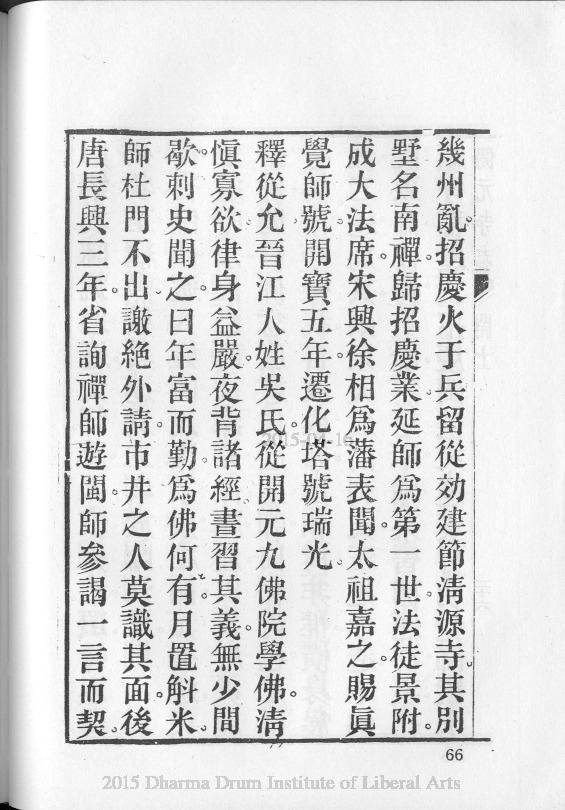 幾州亂。招慶火于兵。留從効建節清源寺。其別
墅名南禪。歸招慶業。延師爲第一世。法徒景附。
成大法席。宋興徐相爲藩。表聞。太祖嘉之。賜眞
覺師號。開寶五年。遷化。塔號瑞光。
釋從允。晉江人。姓吳氏。從開元九佛院學佛。淸
愼寡欲。律身益嚴。夜背諸經。晝習其義。無少間
歇。刺史聞之曰。年富而勤。爲佛何有。月置斛米。
師杜門不出。謝絕外請。市井之人莫識其面。後
唐長興三年。省詢禪師遊閩。師參謁。一言而契。
66
2015 Dharma Drum Institute of Liberal Arts